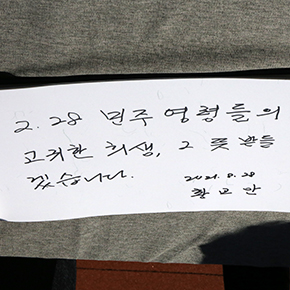 2.28 민주 영령들의
고귀한 희생, 그 뜻 받들
겠습니다.
2021. 8. 28
황교안